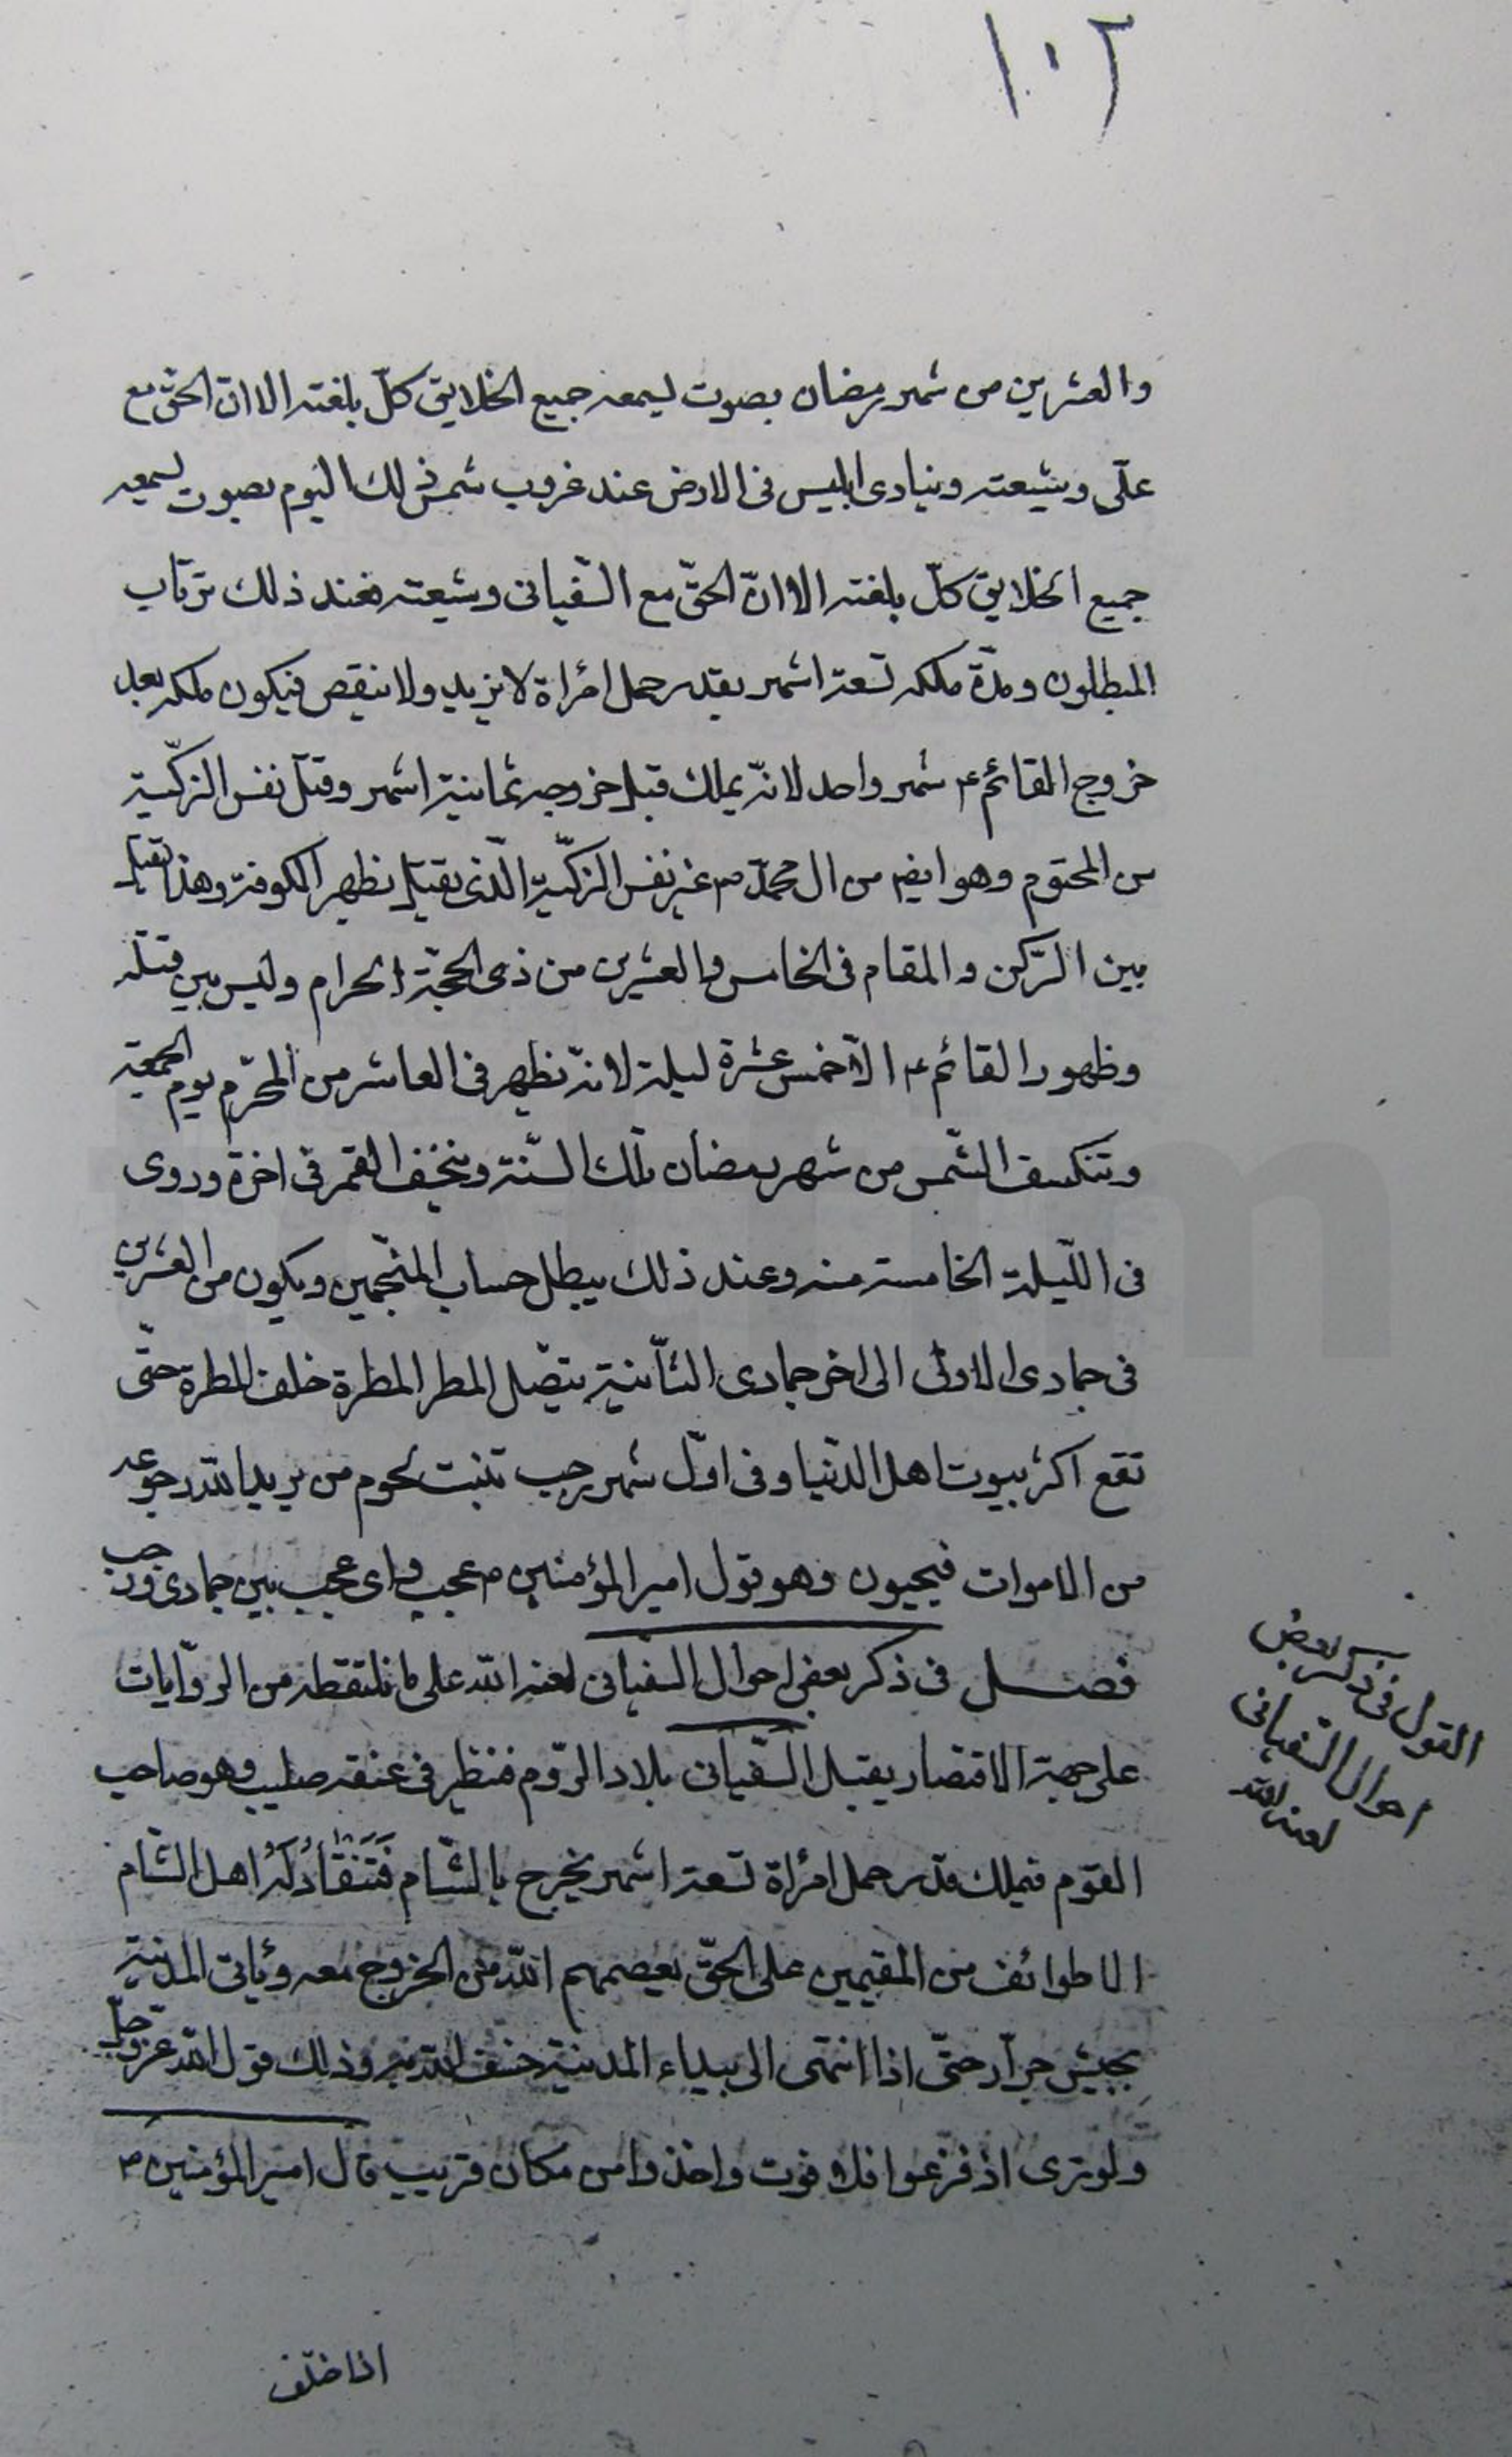 ١٠٢
والعشرين من شهر رمضان بصوت ليسمعه جميع الخلايق كلّ بلغته الا انّ الحقّ مع
علّى وشيعته وينادى ابليس فى الارض عند غروب شمس ذلك اليوم بصوت ليسمعه
جميع الخلايق كلّ بلغته الا انّ الحقّ مع السّفيانى وشيعته فعند ذلك يرتاب
المبطلون ومدّة ملكه تسعة اشهر بقدر حمل امرأة لا يزيد ولا ينقص فيكون ملكه بعد
خروج القائم ع شهر واحد لانّه يملك قبل خروجه ثمانية اشهر وقتل نفس الزكّية
من المحتوم وهو ايضا من ال محمّد ص غير نفس الزكّية الّذى يقتل بظهر الكوفة وهذا يقتل
بين الرّكن والمقام فى الخامس والعشرين من ذى الحجّة الحرام وليس بين قتله
وظهور القائم ع الّا خمس عشرة ليلة لانّه يظهر فى العاشر من المحرّم يوم الجمعة
وتنكسف الشّمس من شهر رمضان تلك السّنة وينخسف القمر فى اخرة وروى
فى اللّيلة الخامسة منه وعند ذلك يبطل حساب المنجّمين ويكون من العشرين
فى جمادى الاولى الى اخر جمادى الثّانية يتصّل المطر المطرة خلف المطرة حتّى
تقع اكثر بيوت اهل الدّنيا وفى اوّل شهر رجب تنبت لحوم من يريد الله رجوعه
من الاموات فيحيون وهو قول امير المؤمنين ع عجب واى عجب بين جمادى ورجب
فصل فى ذكر بعض احوال السفيانى لعنه الله على ما نلتقطه من الروّايات
على جهة الاقتصار يقبل السّفيانى بلاد الرّوم فنظر فى عنقه صليب وهو صاحب
القوم فيملك قدر حمل امرأة تسعة اشهر يخرج بالشّام فَتَنْقَادُ لَهُ اهل الشّام
الا طوائف من المقيمين على الحقّ يعصمهم الله من الخروج معه ويأتى المدينة
بجيش جرّار حتّى اذا انتهى الى بيداء المدينة خسف الله به وذلك قول الله عزّ وجلّ
ولو ترى اذ فزعوا فلا فوت واخذوا من مكان قريب قال امير المؤمنين ع
القول فى ذكر بعض
احوال السّفيانى
لعنه الله
اذا خلّف